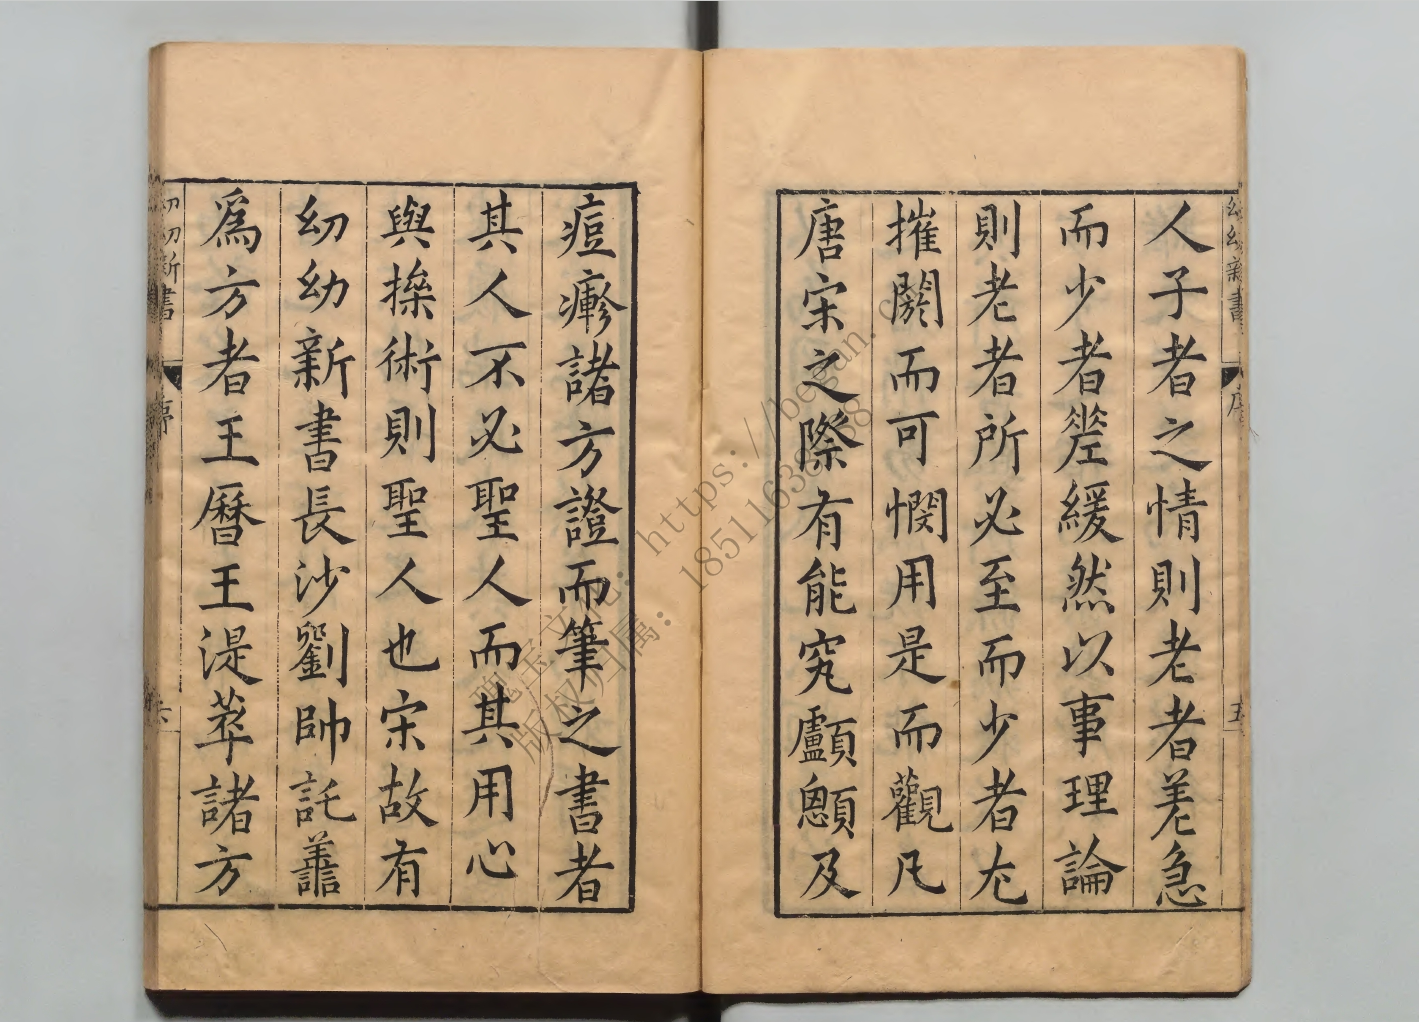 幼幼新書
序
五
人子者之情則老者差急
而少者差緩然以事理論
則老者所必至而少者尤
摧閼而可憫用是而觀凡
唐宋之際有能究顱顖及
痘瘮諸方證而筆之書者
其人不必聖人而其用心
與操術則聖人也宋故有
幼幼新書長沙劉帥託譱
爲方者王曆王湜萃諸方
幼幼新書
序
六
https://began.cn
18511638
瑰宝文化:
版权归属: